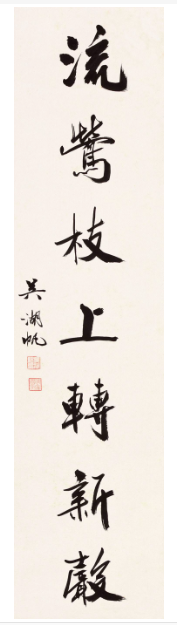 流莺枝上轉新聲
吴湖帆